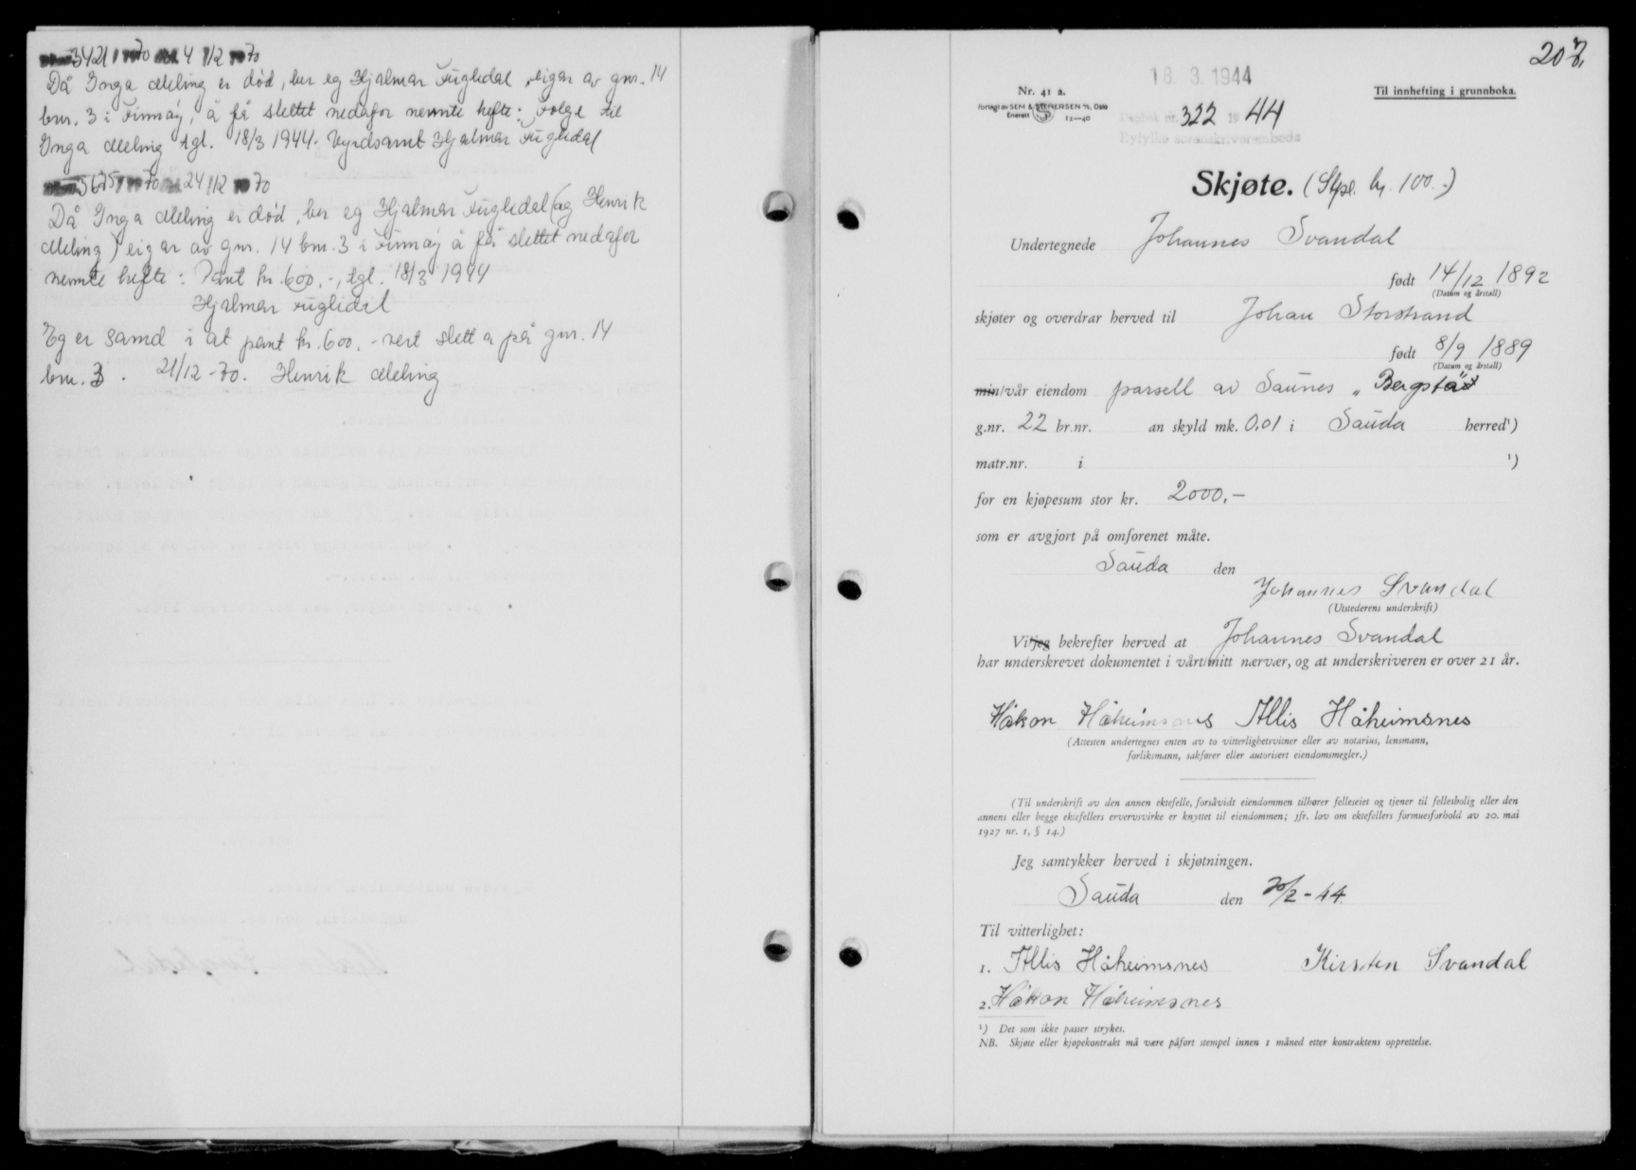 3421 1970 4/12 1970
Då Inga Meling er død, ber eg Hjalmar Fuglidal, eigar av gnr. 14
bnr. 3 i Finnøy, å få slettet nedafor nemnte hefte: Følge til
Inga Meling tgl. 18/3 1944. Vyrdsamt Hjalmar Fuglidal
5675 1970 24/12 1970
Då Inga Meling er død, ber eg Hjalmar Fuglidal (og Henrik
Meling) eigar av gnr. 14 bnr. 3 i Finnøy å få slettet nedafor
nemnte hefte: Pant kr. 600.-, tgl. 18/3 1944
Hjalmar Fuglidal
Eg er samd i at pant kr. 600.- vert sletta på gnr. 14
bnr. 3. 21/12-70. Henrik Meling
207.
18. 3. 1944
Nr. 41 a.
Til innhefting i grunnboka.
Forlagt av SEM & STENERSEN A/S, Oslo
Enerett 12—40
Dagbok nr. 322 19 44
Ryfylke sorenskriverembede
Skjøte. (Stpl. kr. 100.-)
Undertegnede Johannes Svandal
født 14/12 1892
(Datum og årstall)
skjøter og overdrar herved til Johan Storstrand
født 8/9 1889
(Datum og årstall)
min/vår eiendom parsell av Saunes „Bergstad"
g.nr. 22 br.nr. an skyld mk. 0,01 i Sauda herred¹)
matr.nr. i ¹)
for en kjøpesum stor kr. 2000,—
som er avgjort på omforenet måte.
Sauda den
Johannes Svandal
(Utstederens underskrift)
Vi/jeg bekrefter herved at Johannes Svandal
har underskrevet dokumentet i vårt/mitt nærvær, og at underskriveren er over 21 år.
Håkon Håheimsnes Allis Håheimsnes
(Attesten undertegnes enten av to vitterlighetsvitner eller av notarius, lensmann,
forliksmann, sakfører eller autorisert eiendomsmegler.)
(Til underskrift av den annen ektefelle, forsåvidt eiendommen tilhører felleseiet og tjener til fellesbolig eller den
annens eller begge ektefellers ervervsvirke er knyttet til eiendommen; jfr. lov om ektefellers formuesforhold av 20. mai
1927 nr. 1, § 14.)
Jeg samtykker herved i skjøtningen.
Sauda den 20/2-44.
Til vitterlighet:
1. Allis Håheimsnes Kirsten Svandal
2. Håkon Håheimsnes
¹) Det som ikke passer strykes.
NB. Skjøte eller kjøpekontrakt må være påført stempel innen 1 måned etter kontraktens opprettelse.